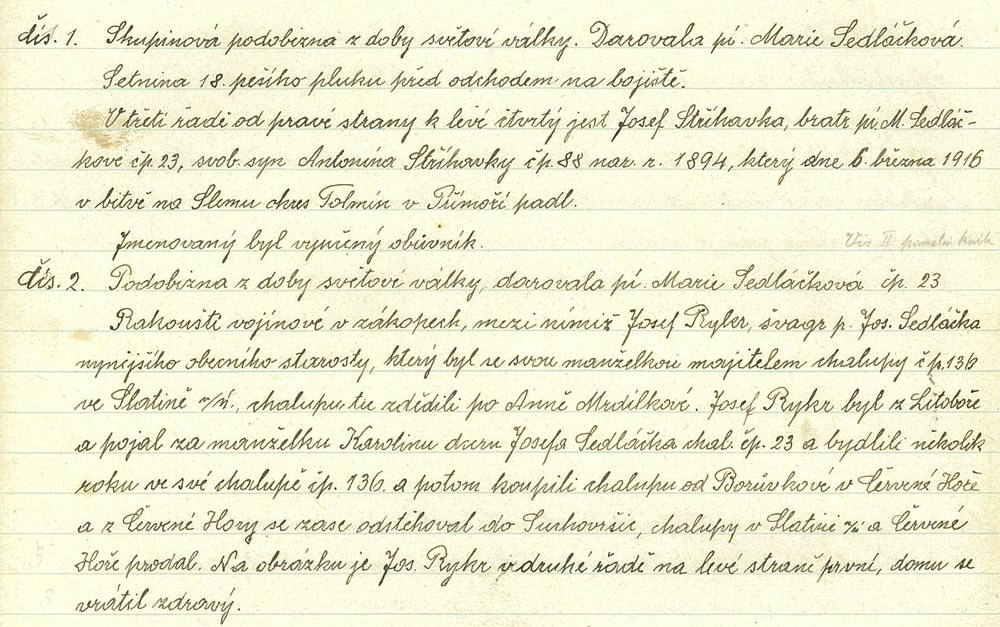 čís. 1. Skupinová podobizna z doby světové války. Darovala pí. Marie Sedláčková.
Setnina 18. pěšího pluku před odchodem na bojiště.
V třetí řadě od pravé strany k levé čtvrtý jest Josef Stříhavka, bratr pí. M. Sedláč-
kové čp. 23, svob. syn Antonína Stříhavky čp. 88 nar. r. 1894, který dne 6. března 1916
v bitvě na Slemu okres Tolmín v Přímoří padl.
Jmenovaný byl vyučený obuvník.
Viz II pamětní knih
čís. 2. Podobizna z doby světové války, darovala pí. Marie Sedláčková čp. 23
Rakouští vojínové v zákopech, mezi nimiž Josef Rykr, švagr p. Jos. Sedláčka
nynějšího obecního starosty, který byl se svou manželkou majitelem chalupy čp. 136
ve Slatině n/Ú., chalupu tu zdědili po Anně Mrdílkové. Josef Rykr byl z Litoboře
a pojal za manželku Karolinu dceru Josefa Sedláčka chal. čp. 23 a bydlili několik
roku ve své chalupě čp. 136. a potom koupili chalupu od Borůvkové v Červené Hoře
a z Červené Hory se zase odstěhoval do Suchovršic, chalupy v Slatině n/Ú a Červené
Hoře prodal. Na obrázku je Jos. Rykr v druhé řadě na levé straně první, domu se
vrátil zdravý.